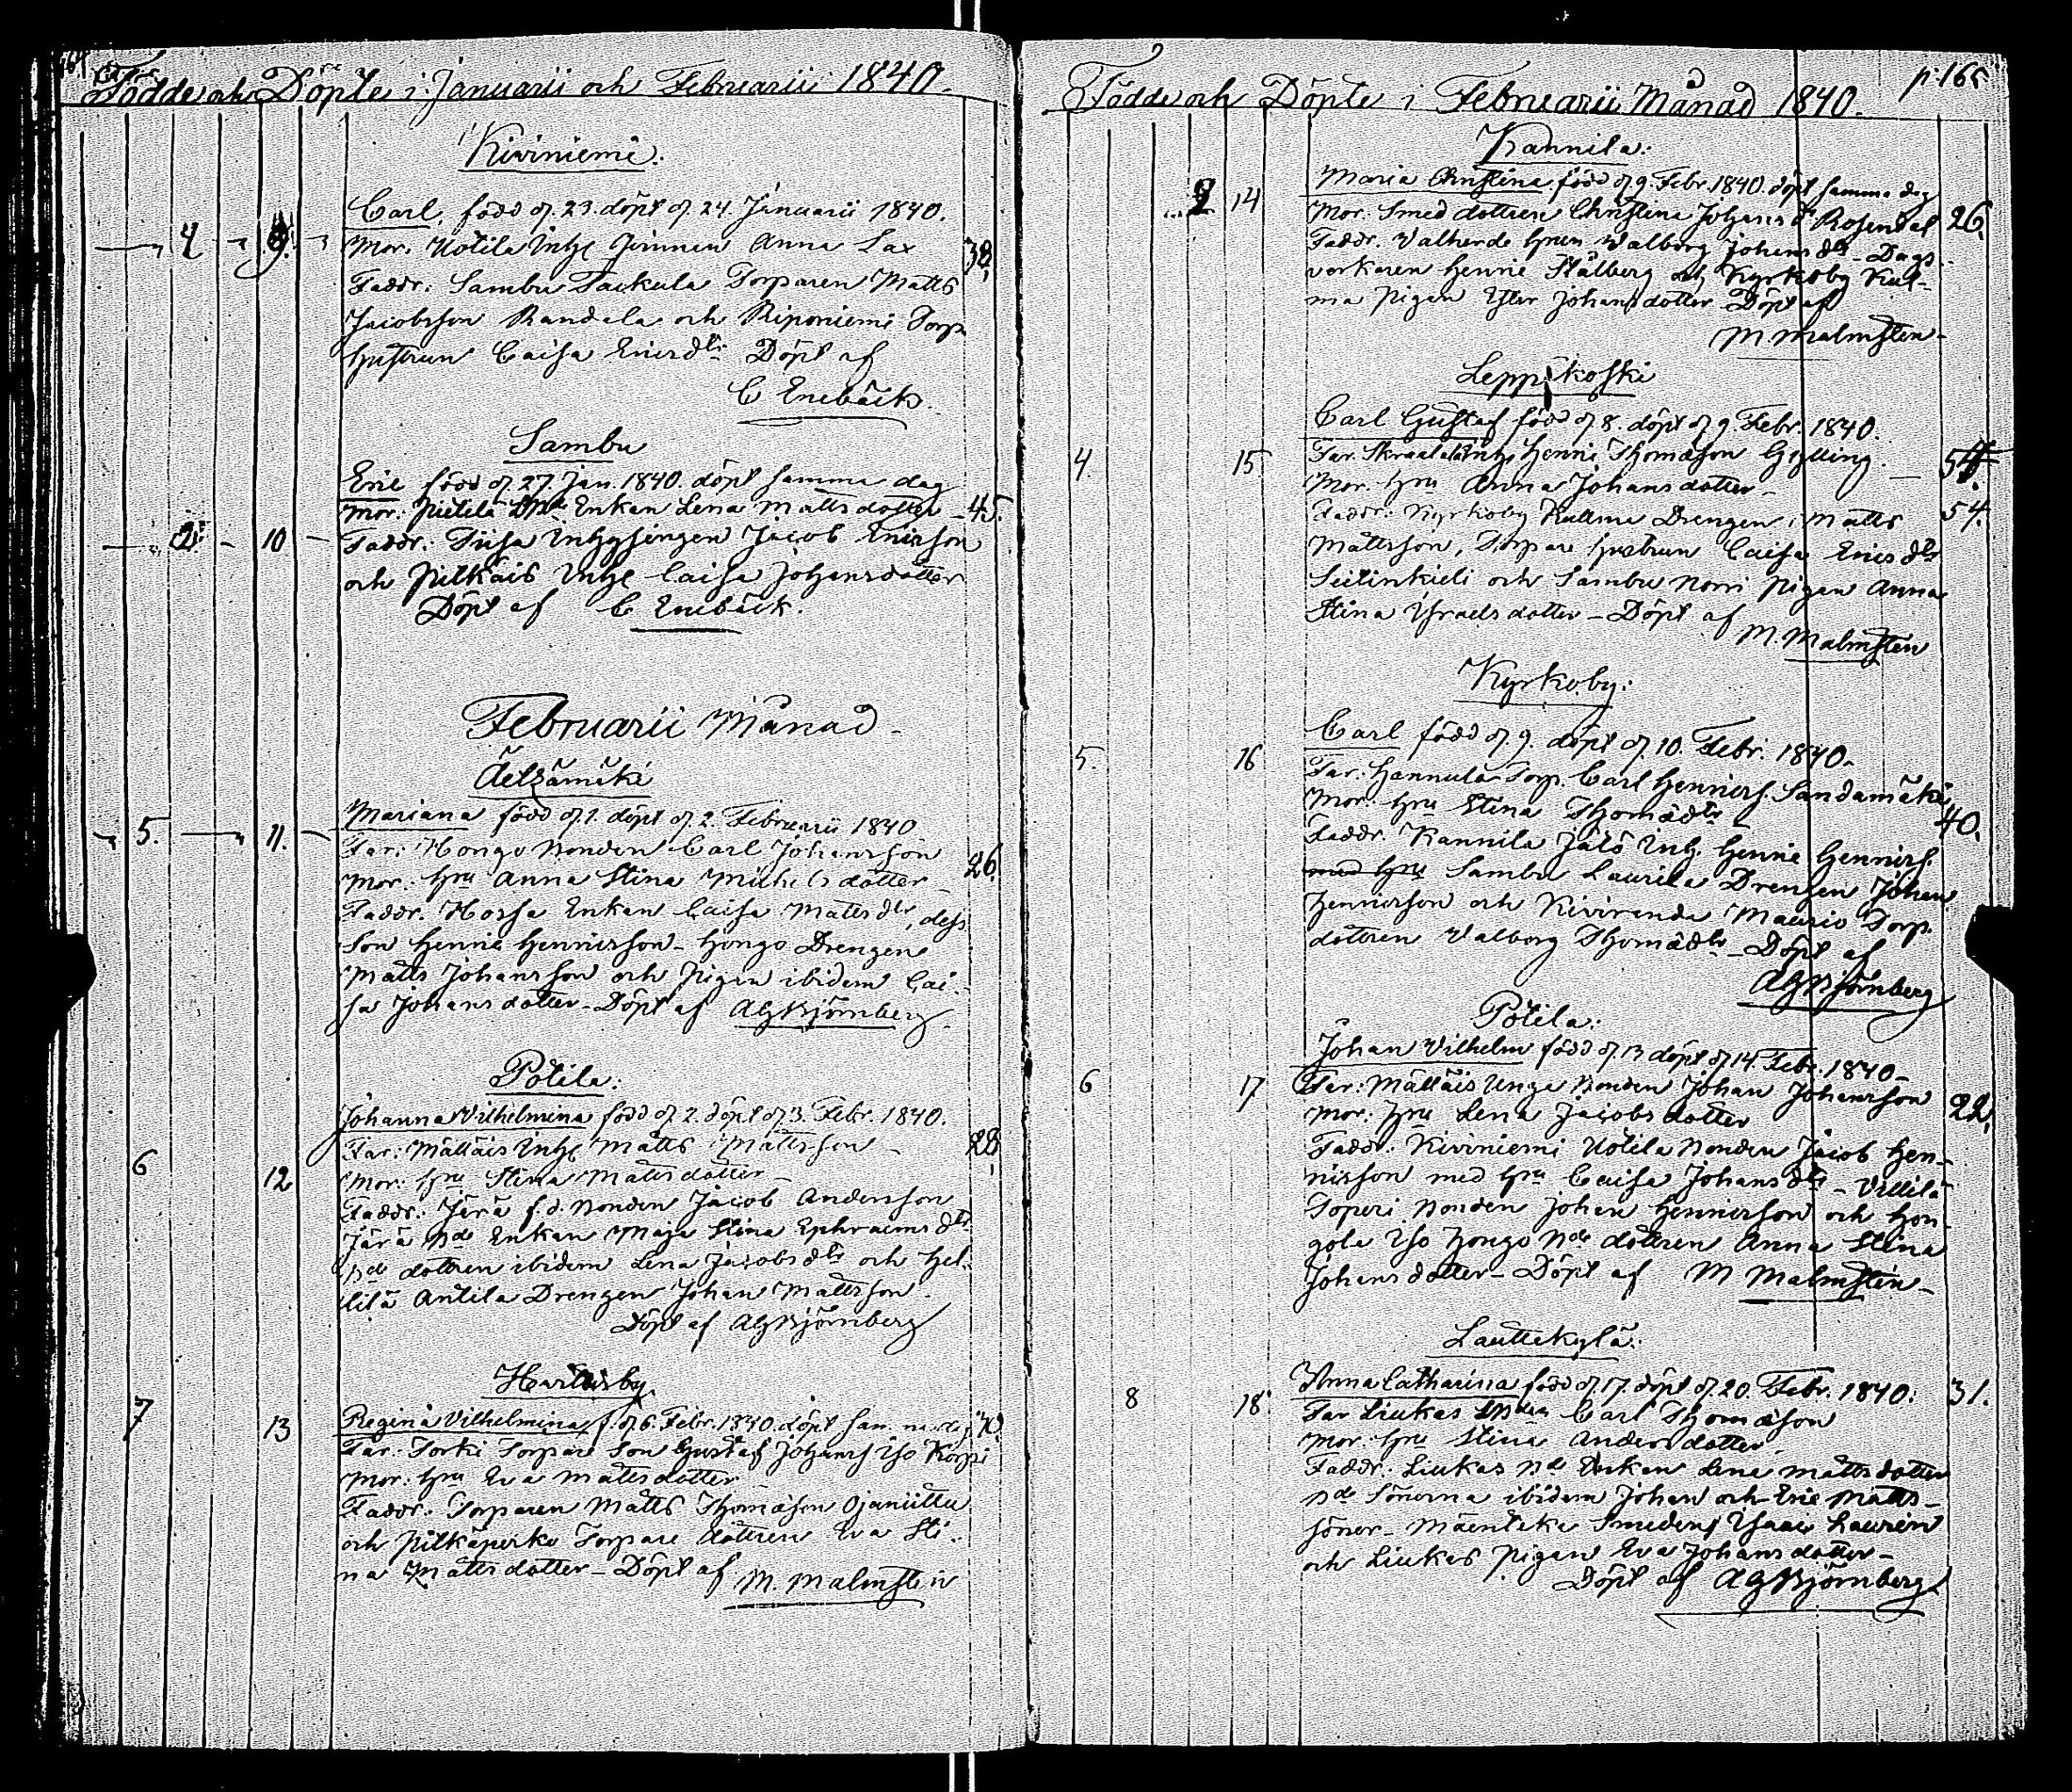 164
Födde och Döpte i Januarii och Februarii 1840.
Kiviniemi.
Carl, född d. 23. döpt d. 24. Januarii 1840.
4 9. Mor. Uotila Inhs Qvinnan Anna Lax 38.
Faddr: Sambu Tackula Torparen Matts
Jacobsson Randala och Riponiemi Torp.
hustrun Caisa Ericsdtr Döpt af
C Enebäck.
Sambu
Eric född d. 27. Jan. 1840. döpt samma dag
Mor: Pietilä Enkan Lena Mattsdotter 45.
2. 10 Faddr: Inhysingen Jacob Ericsson
och Pitkäis Inhs Caisa Johansdotter
Döpt af C Enebäck.
Februarii Månad
Äetsämäki
Mariana född d. 1. döpt d. 2. Februarii 1840
5. 11. Far: Hongo Bonden Carl Johansson
Mor: hru Anna Stina Michelsdotter 26.
Faddr. Hossa Enkan Caisa Mattsdtr, dess
Son Henric Henricsson - Hongo Drengen
Matts Johansson och Pigan ibidem Cai-
sa Johansdotter - Döpt af AGBjörnberg
Potila:
Johanna Vilhelmina född d. 2. döpt d. 3. Febr. 1840.
6 12 Far: Mattäis Inhs Matts Mattsson 28.
Mor: hru Stina Mattsdotter
Faddr: Järä f.d. Bonden Jacob Andersson
Järä Bde Enkan Maja Stina Ephraimsdtr
Bde dottren ibidem Lena Jacobsdtr och Hel-
lilä Antila Drengen Johan Mattsson.
Döpt af AGBjörnberg
7 13 Regina Vilhelmina f. d. 6. Febr. 1840. döpt samma dag 40.
Far: Torki Torpare Son Gustaf Johanss Iso Korpi
Mor: hru Eva Mattsdotter
Faddr: Torparen Matts Thomasson Ojaniittu
och Pitkäperko Torpare dottren Eva Sti-
na Mattsdotter - Döpt af M. Malmsten
p. 165
Födde och Döpte i Februarii Månad 1840.
Kannila:
Maria Christina född d. 9. Febr. 1840. döpt samma dag
2 14 Mor. Smed dottren Christina Johansdr Rosendal 26.
Faddr. Valborg Johansdtr - Dags-
verkaren Henric Stålberg och Kyrkoby Kul-
ma Pigan Ester Johansdotter Döpt af
M. Malmsten
Leppikoski
Carl Gustaf född d. 8. döpt d. 9. Febr. 1840.
4. 15 Far. Inhs Henric Thomasson Gylling.
Mor. hru Anna Johansdotter
Faddr: Kyrkoby Kullma Drengen Matts 54.
Mattsson, Torpare hustrun Caisa Ericsdtr
Seitinkieli och Sambu Norri Pigan Anna
Stina Israelsdotter - Döpt af
M. Malmsten
Kyrkoby:
Carl född d. 9. döpt d. 10. Febr. 1840.
5. 16 Far: Hannula Torp. Carl Henricss. Sandamäki
Mor: hru Stina Thomædtr 40.
Faddr. Kannila Jälö Inh. Henric Henricss.
med hru Sambu Laurila Drengen Johan
Henricsson och Kiviranda Maurio Torp.
dottren Valborg Thomædtr - Döpt af
AGBjörnberg
Potila:
Johan Vilhelm född d. 13 döpt d. 14. Febr. 1840
6 17 Far: Mattäis Unga Bonden Johan Johansson
Mor: hru Lena Jacobsdotter 22.
Faddr: Kiviniemi Uotila Bonden Jacob Hen-
ricsson med hru Caisa Johansdtr - Villilä
Soperi Bonden Johan Henricsson och Hon-
gola Iso Hongo Bde dottren Anna Stina
Johansdotter - Döpt af M Malmsten
Lauttakylä:
Anna Catharina född d. 17. döpt d. 20. Febr. 1840. 31.
8 18. Far Liukas Carl Thomasson
Mor: hru Stina Andersdotter
Faddr: Liukas Bde Enkan Lena Mattsdotter
Bde Sönerna ibidem Johan och Eric Matts-
söner - Mäenteke Smeden Isaac Laurén
och Liukas Pigan Eva Johansdotter
Döpt af AGBjörnberg